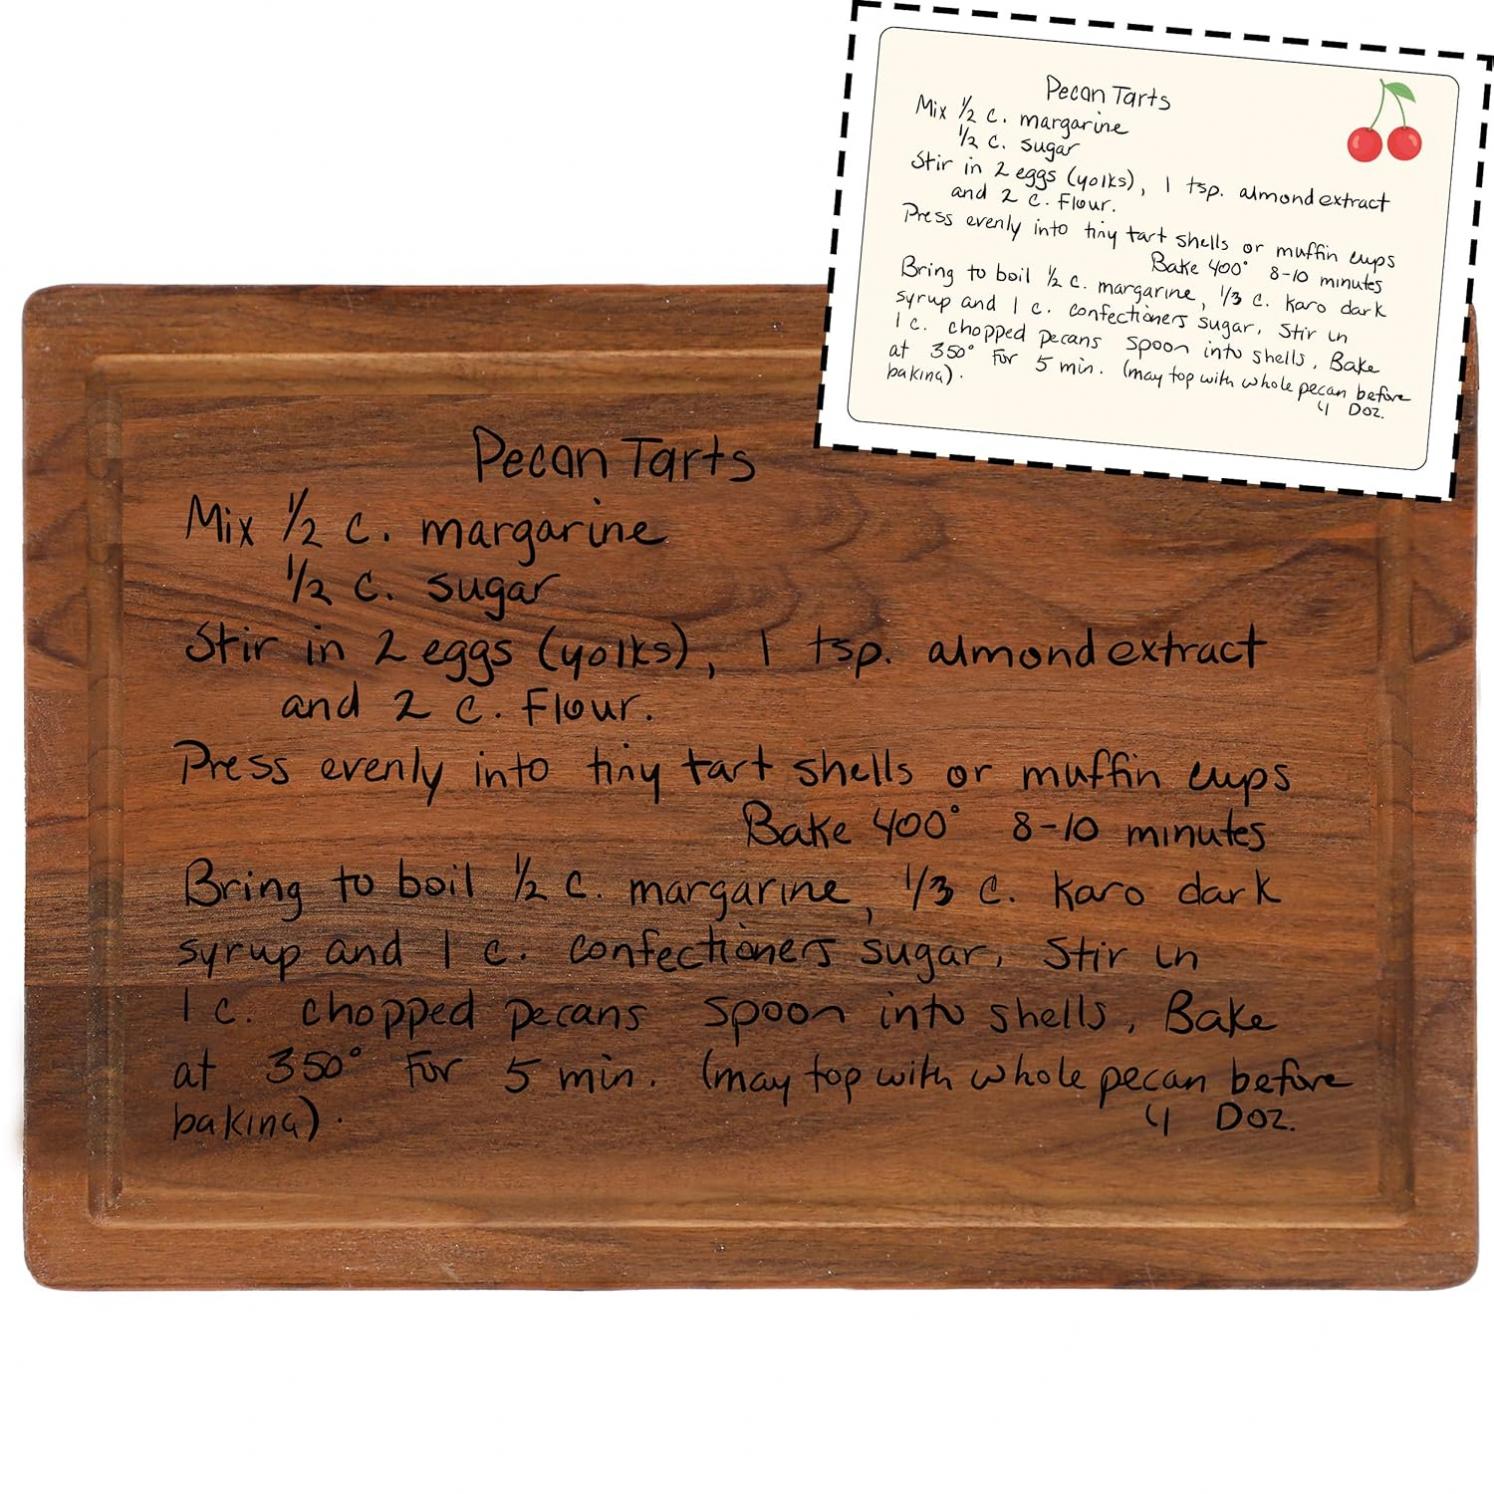 Pecan Tarts
Mix 1/2 c. margarine
1/2 c. sugar
Stir in 2 eggs (yolks), 1 tsp. almond extract
and 2 c. Flour.
Press evenly into tiny tart shells or muffin cups
Bake 400° 8-10 minutes
Bring to boil 1/2 c. margarine, 1/3 c. Karo dark
syrup and 1 c. confectioners sugar, Stir in
1 c. chopped pecans spoon into shells, Bake
at 350° For 5 min. (may top with whole pecan before
baking).
4 Doz.
Pecan Tarts
Mix 1/2 c. margarine
1/2 c. sugar
Stir in 2 eggs (yolks), 1 tsp. almond extract
and 2 c. Flour.
Press evenly into tiny tart shells or muffin cups
Bake 400° 8-10 minutes
Bring to boil 1/2 c. margarine, 1/3 c. Karo dark
syrup and 1 c. confectioners sugar, Stir in
1 c. chopped pecans spoon into shells, Bake
at 350° For 5 min. (may top with whole pecan before
baking).
4 Doz.